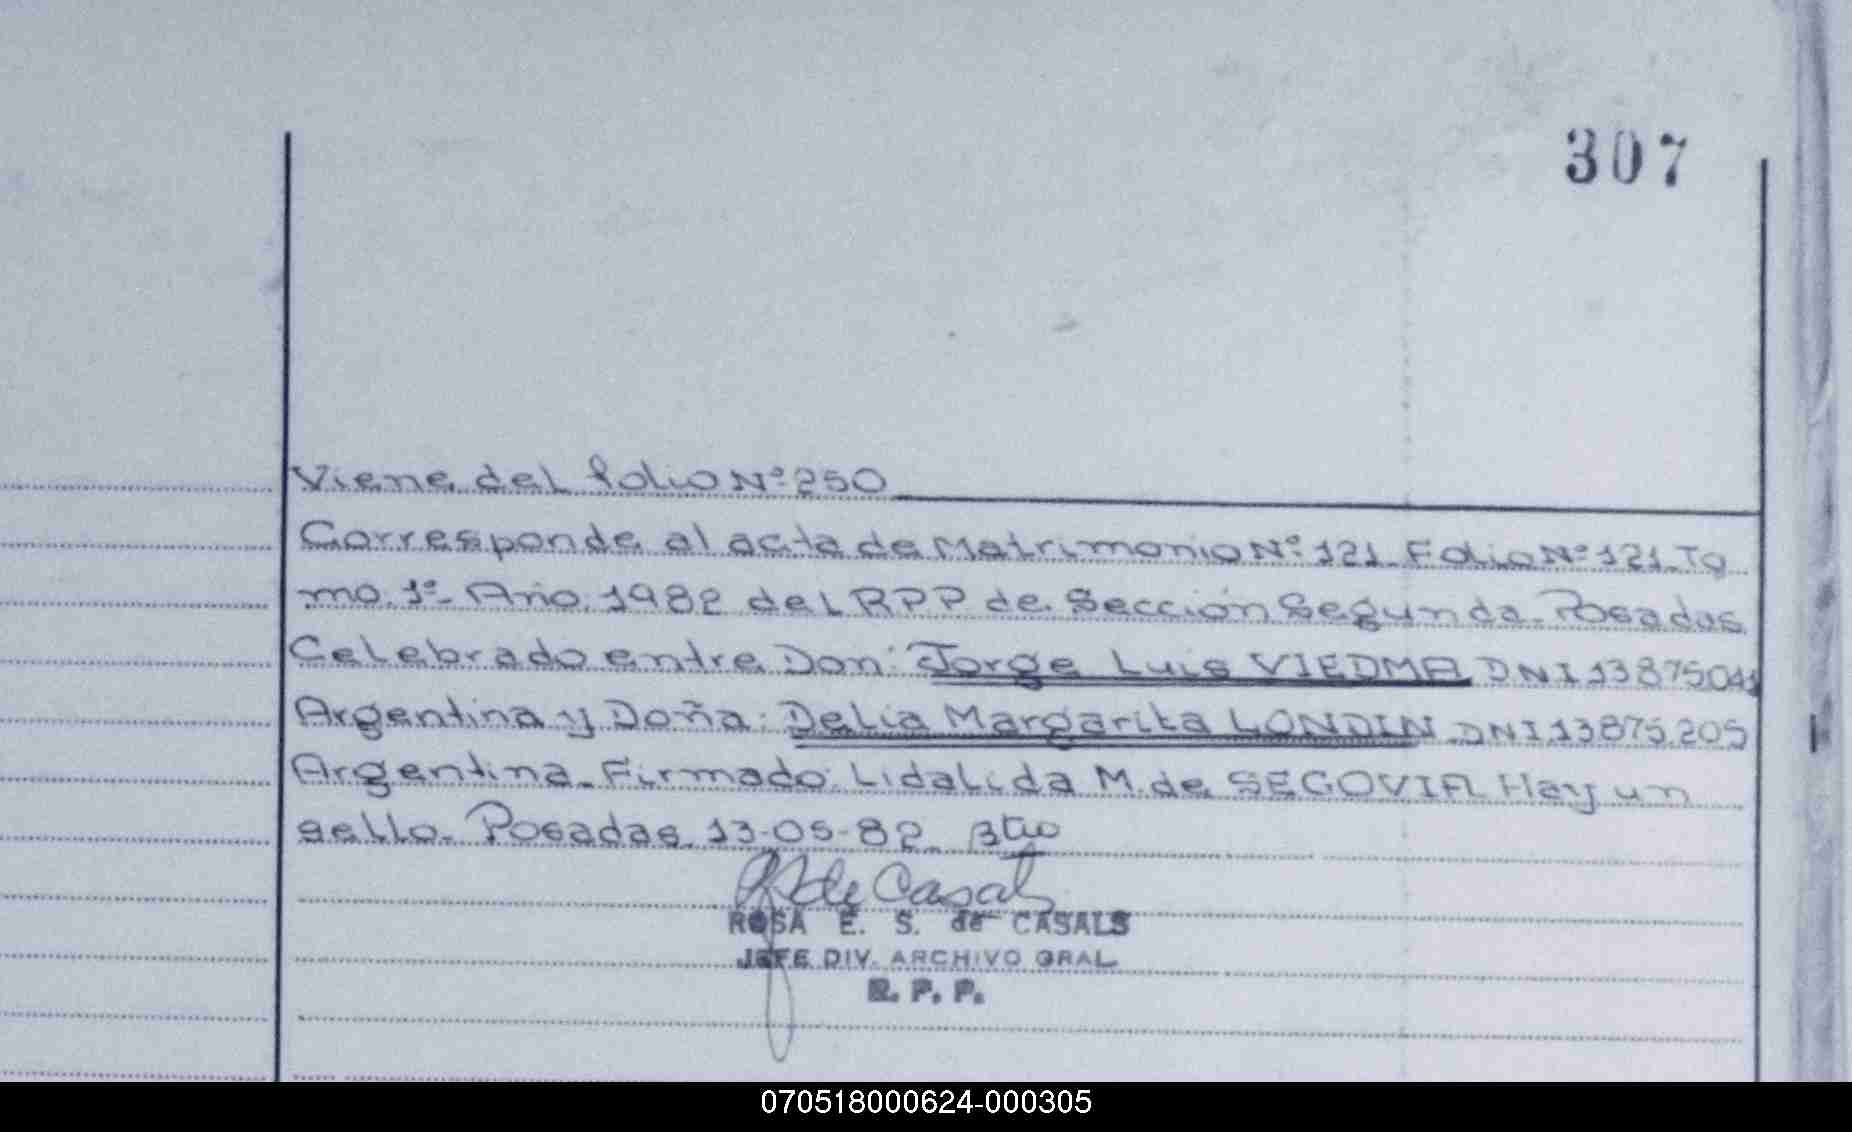 307
Viene del folio Nº 250
Corresponde al acta de Matrimonio Nº 121_ Folio Nº 121_ To
mo. 1º_ Año. 1982 del RPP de. Sección Segunda_ Posadas
Celebrado entre Don: Jorge Luis VIEDMA DNI 13875041
Argentina y Doña: Delia Margarita LONDIN DNI 13875.205
Argentina_ Firmado: Lidalida M. de SEGOVIA Hay un
sello_ Posadas 13-05-82_
de Casals
ROSA E. S. de CASALS
JEFE DIV. ARCHIVO GRAL
R. P. P.
070518000624-000305